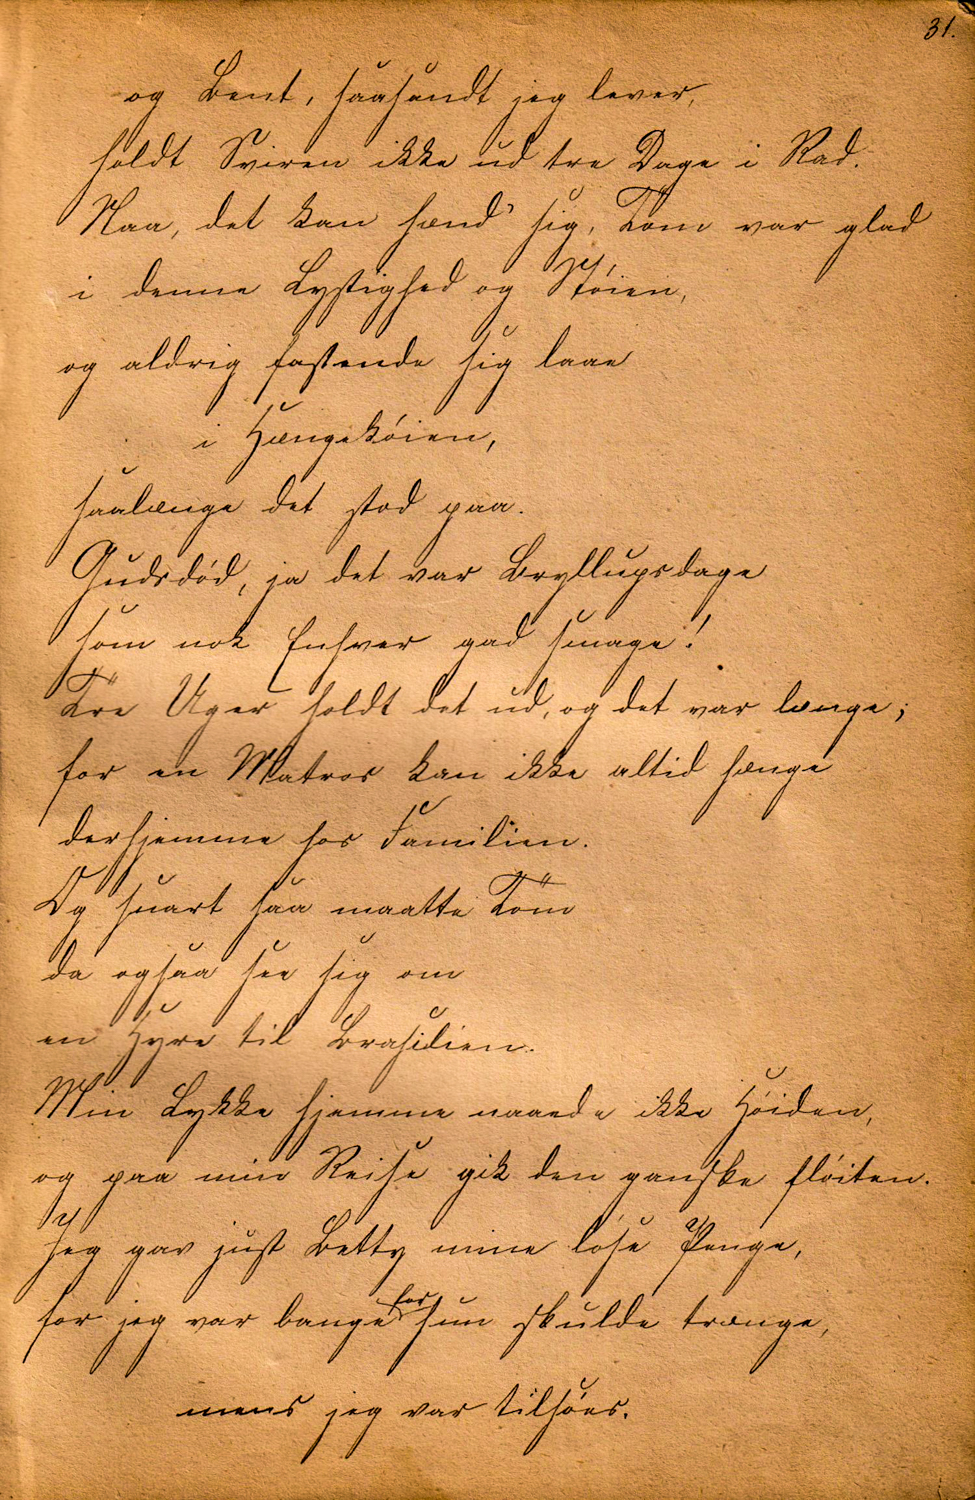 31.
og Bent, saasandt jeg lever,
holdt Sviren ikke ud tre Dage i Rad.
Naa, det kan hænd' sig, Tom var glad
i denne Lystighed og Støien,
og aldrig fastende sig laae
i Hængekøien,
saalænge det stod paa.
Gudsdød, ja det var Bryllupsdage
som nok Enhver gad smage!
Tre Uger holdt det ud, og det var længe;
for en Matros kan ikke altid hænge
derhjemme hos Familien.
Og snart saa maatte Tom
da ogsaa see sig om
en Hyre til Brasilien.
Min Lykke hjemme naaede ikke Høiden,
og paa min Reise gik den ganske fløiten.
Jeg gav just Betty mine løse Penge,
for jeg var bange for hun skulde trænge,
mens jeg var tilsøes.